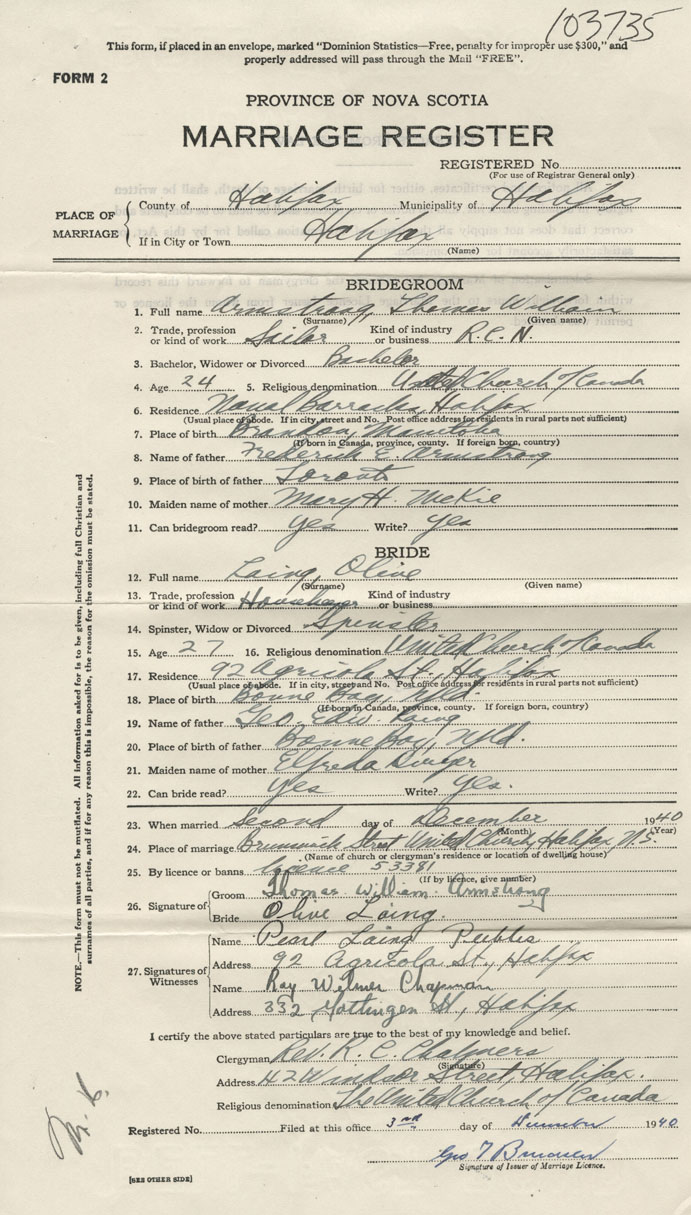 103735
This form, if placed in an envelope, marked "Dominion Statistics—Free, penalty for improper use $300," and
properly addressed will pass through the Mail "FREE".
FORM 2
PROVINCE OF NOVA SCOTIA
MARRIAGE REGISTER
REGISTERED No.
(For use of Registrar General only)
PLACE OF MARRIAGE
County of Halifax Municipality of Halifax
If in City or Town Halifax
(Name)
BRIDEGROOM
1. Full name Armstrong, Thomas William
(Surname) (Given name)
2. Trade, profession or kind of work Sailor Kind of industry or business R.C.N.
3. Bachelor, Widower or Divorced Bachelor
4. Age 24 5. Religious denomination United Church of Canada
6. Residence Naval Barracks, Halifax
(Usual place of abode. If in city, street and No. Post office address for residents in rural parts not sufficient)
7. Place of birth Brandon, Manitoba
(If born in Canada, province, county. If foreign born, country)
8. Name of father Frederick E. Armstrong
9. Place of birth of father Toronto
10. Maiden name of mother Mary H. McKie
11. Can bridegroom read? Yes Write? Yes
BRIDE
12. Full name Laing, Olive
(Surname) (Given name)
13. Trade, profession or kind of work Kind of industry or business
14. Spinster, Widow or Divorced Spinster
15. Age 27 16. Religious denomination United Church of Canada
17. Residence 92 Agricola St., Halifax
(Usual place of abode. If in city, street and No. Post office address for residents in rural parts not sufficient)
18. Place of birth Bonne Bay, Nfld.
(If born in Canada, province, county. If foreign born, country)
19. Name of father Geo. Edw. Laing
20. Place of birth of father Bonne Bay, Nfld.
21. Maiden name of mother Elfreda
22. Can bride read? Yes Write? Yes.
23. When married Second day of December 1940
(Month) (Year)
24. Place of marriage Brunswick Street United Church, Halifax N.S.
(Name of church or clergyman's residence or location of dwelling house)
25. By licence or banns licence 53381
(If by licence, give number)
26. Signature of
Groom Thomas William Armstrong
Bride Olive Laing.
27. Signatures of Witnesses
Name Pearl Laing Peebles
Address 92 Agricola St., Halifax
Name Ray Wilmer Chapman
Address 332 Gottingen St, Halifax
I certify the above stated particulars are true to the best of my knowledge and belief.
Clergyman Rev. R. C. Chalmers
(Signature)
Address 42 Windsor Street, Halifax.
Religious denomination The United Church of Canada
Registered No. Filed at this office 3rd day of December 1940
Geo
Signature of Issuer of Marriage Licence.
[SEE OTHER SIDE]
NOTE.—This form must not be mutilated. All information asked for is to be given, including full Christian and
surnames of all parties, and if for any reason this is impossible, the reason for the omission must be stated.